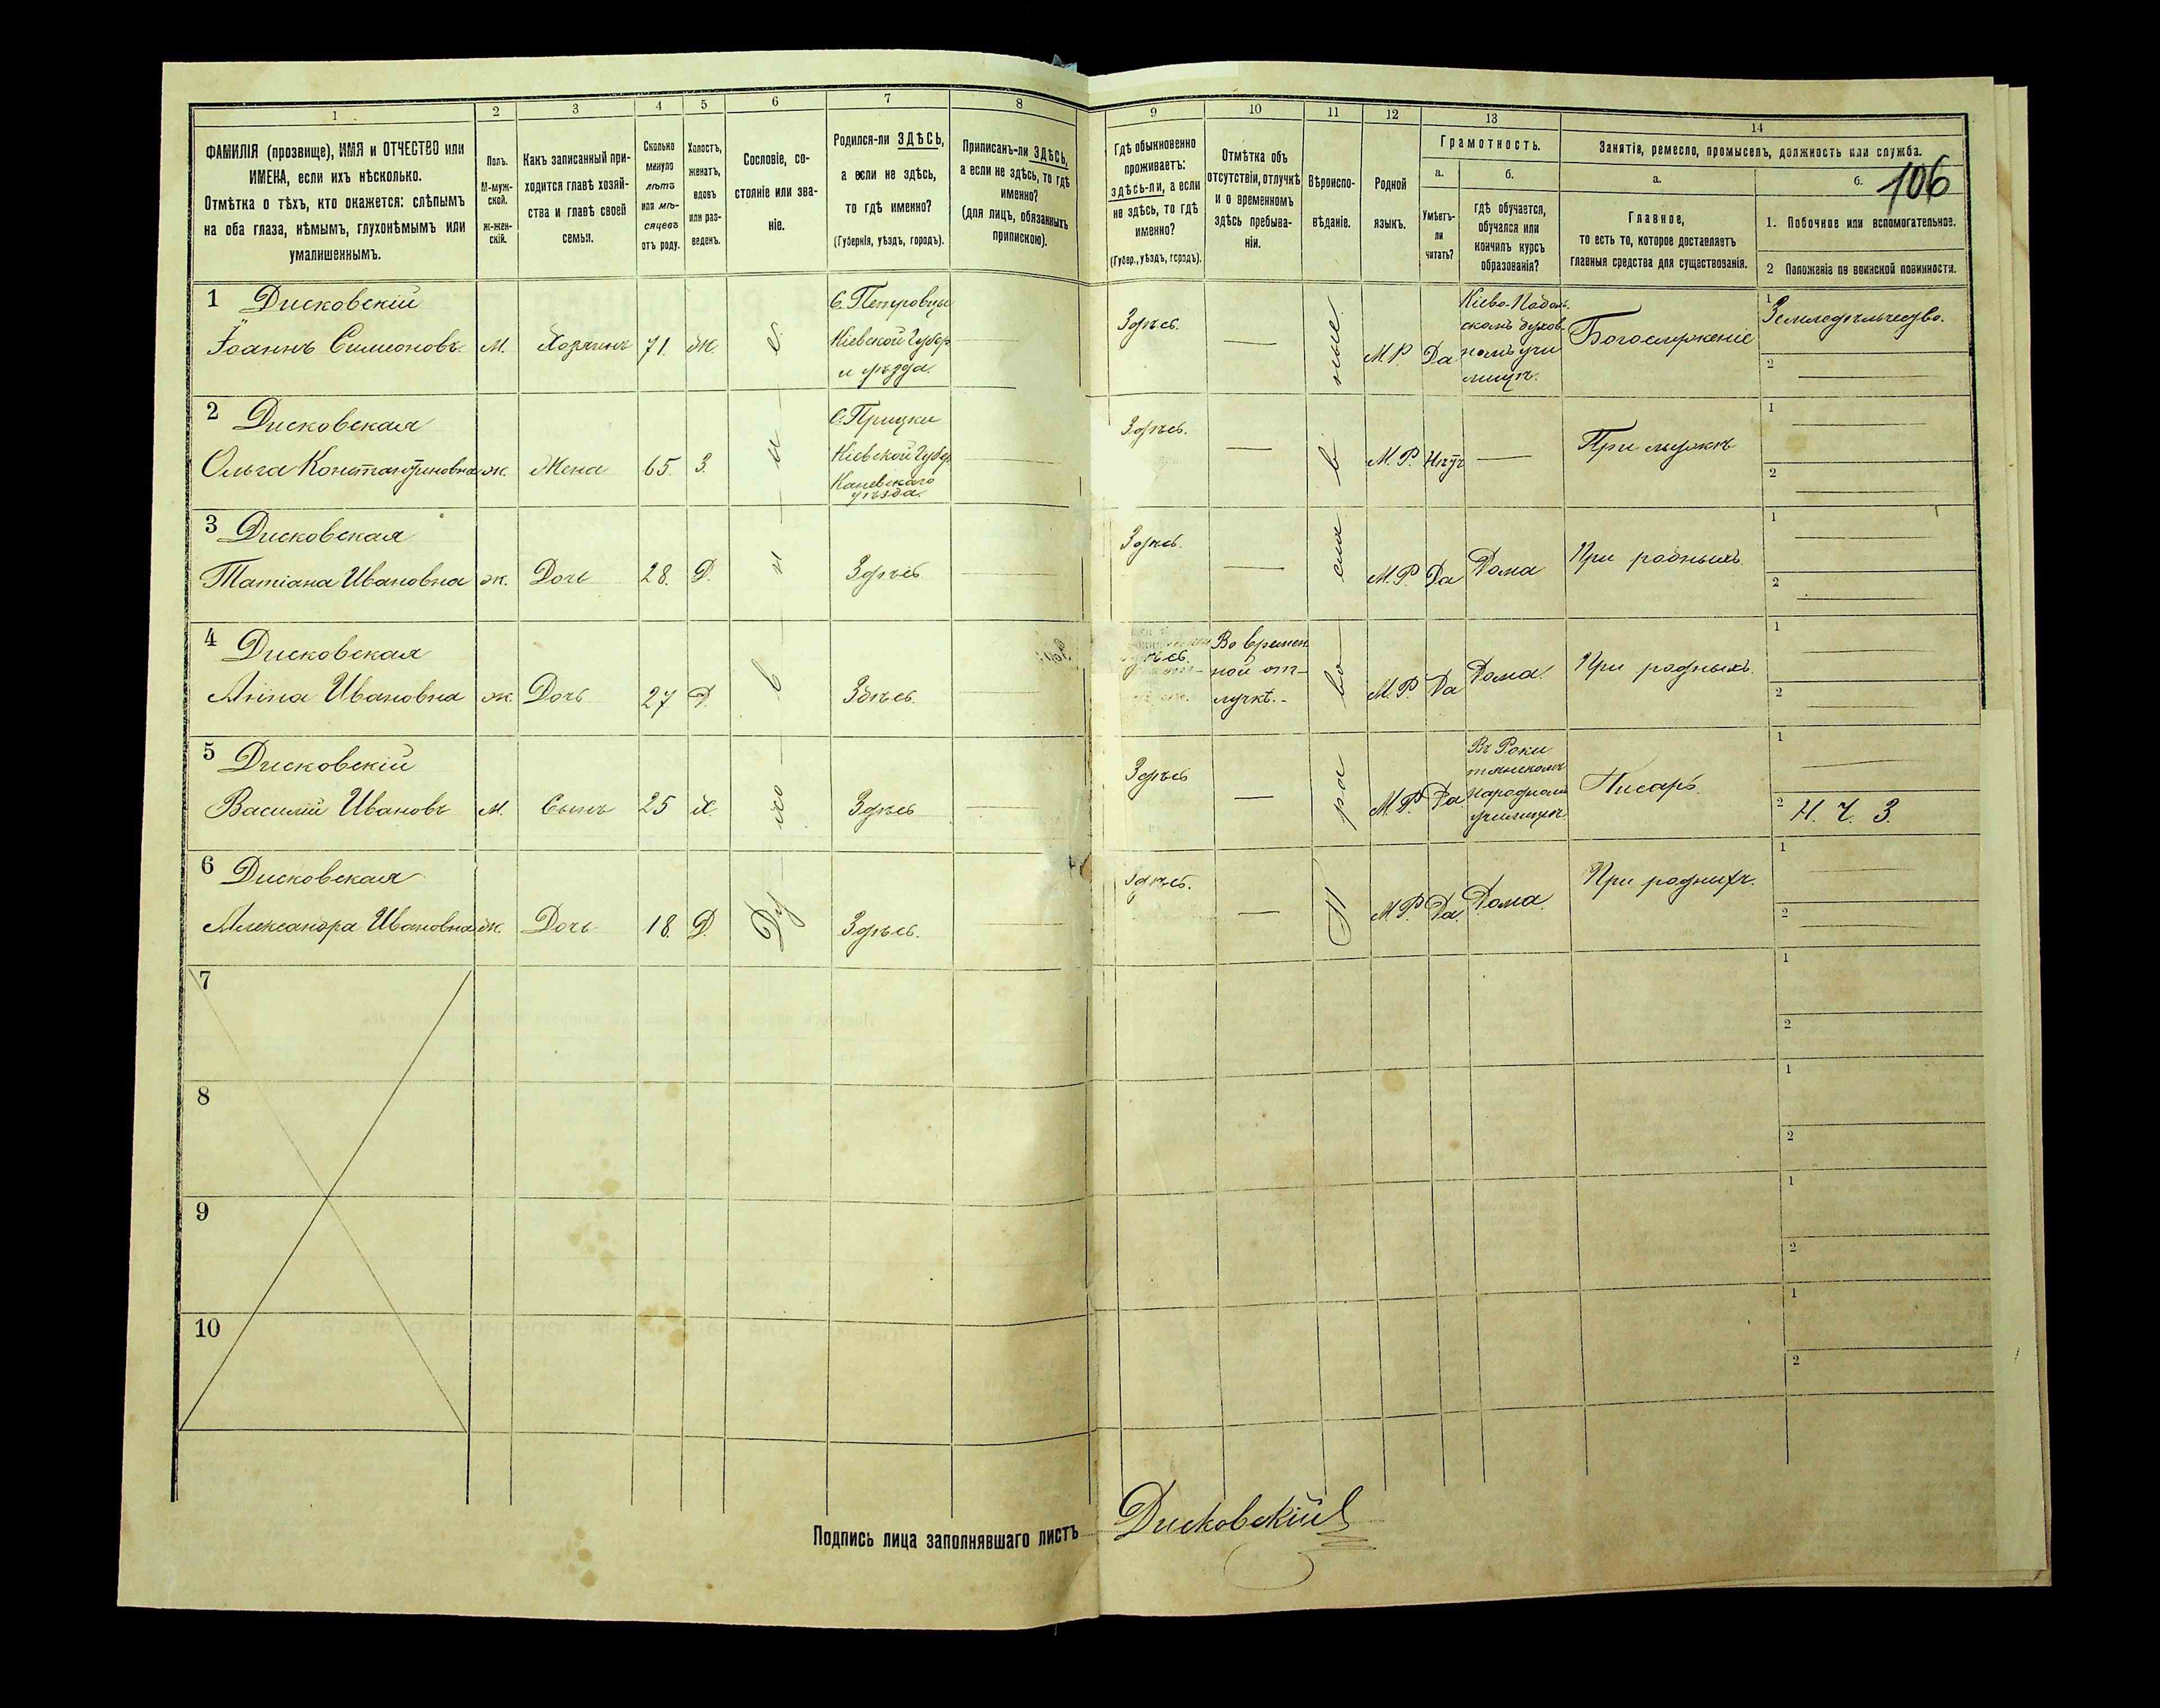 1
2
3
4
5
6
7
8
ФАМИЛІЯ (прозвище), ИМЯ и ОТЧЕСТВО или
ИМЕНА, если ихъ нѣсколько.
Отмѣтка о тѣхъ, кто окажется: слѣпымъ
на оба глаза, нѣмымъ, глухонѣмымъ или
умалишеннымъ.
Полъ.
М-муж-
ской.
ж-жен-
скій.
Какъ записанный при-
ходится главѣ хозяй-
ства и главѣ своей
семьи.
Сколько
минуло
лѣтъ
или мѣ-
сяцевъ
отъ роду.
Холостъ,
женатъ,
вдовъ
или раз-
веденъ.
Сословіе, со-
стояніе или зва-
ніе.
Родился-ли ЗДѢСЬ,
а если не здѣсь,
то гдѣ именно?
(Губернія, уѣздъ, городъ).
Приписанъ-ли ЗДѢСЬ,
а если не здѣсь, то гдѣ
именно?
(для лицъ, обязанныхъ
припискою).
9
10
11
12
13
14
Гдѣ обыкновенно
проживаетъ:
здѣсь-ли, а если
не здѣсь, то гдѣ
именно?
(Губер., уѣздъ, городъ).
Отмѣтка объ
отсутствіи, отлучкѣ
и о временномъ
здѣсь пребыва-
ніи.
Вѣроиспо-
вѣданіе.
Родной
языкъ.
Грамотность.
а.
б.
Умѣетъ-
ли
читать?
гдѣ обучается,
обучался или
кончилъ курсъ
образованія?
Занятіе, ремесло, промыселъ, должность или служба.
а.
б.
106
Главное,
то есть то, которое доставляетъ
главныя средства для существованія.
1. Побочное или вспомогательное.
2 Положеніе по воинской повинности.
1 Дисковскій
Іоаннъ Симеоновъ
М.
Хозяинъ
71.
Ж.
С. Петровцы
Кіевской Губер
и уѣзда.
Здѣсь.
М.Р.
Да
Кіево-Подоль
скомъ духов
номъ учи
лищѣ.
Богослуженіе
1
Земледѣльчество.
2
2 Дисковская
Ольга Константиновна
ж.
Жена
65.
З.
С. Прицки
Кіевской Губер
Каневскаго
уѣзда.
Здѣсь.
М.Р.
Нѣтъ
При мужѣ
1
2
3 Дисковская
Татіана Ивановна
ж.
Дочь
28.
Д.
Здѣсь
Здѣсь.
М.Р.
Да
Дома
При родныхъ
1
2
4 Дисковская
Анна Ивановна
ж.
Дочь
27
Д.
Здѣсь.
Во времен
ной от-
лучкѣ.-
М.Р.
Да
Дома.
При родныхъ.
1
2
5 Дисковскій
Василій Ивановъ
М.
Сынъ
25
Х.
Здѣсь
Здѣсь
М.Р.
Да
Въ Роки
тянскомъ
народномъ
училищѣ
Писарь.
1
2
Н. Ч. З.
6 Дисковская
Александра Ивановна
Ж.
Дочь
18.
Д.
Здѣсь.
Здѣсь.
М.Р.
Да.
Дома.
При родныхъ.
1
2
Духовнаго
Православное
7
1
2
8
1
2
9
1
2
10
1
2
Подпись лица заполнявшаго листъ
Дисковскій